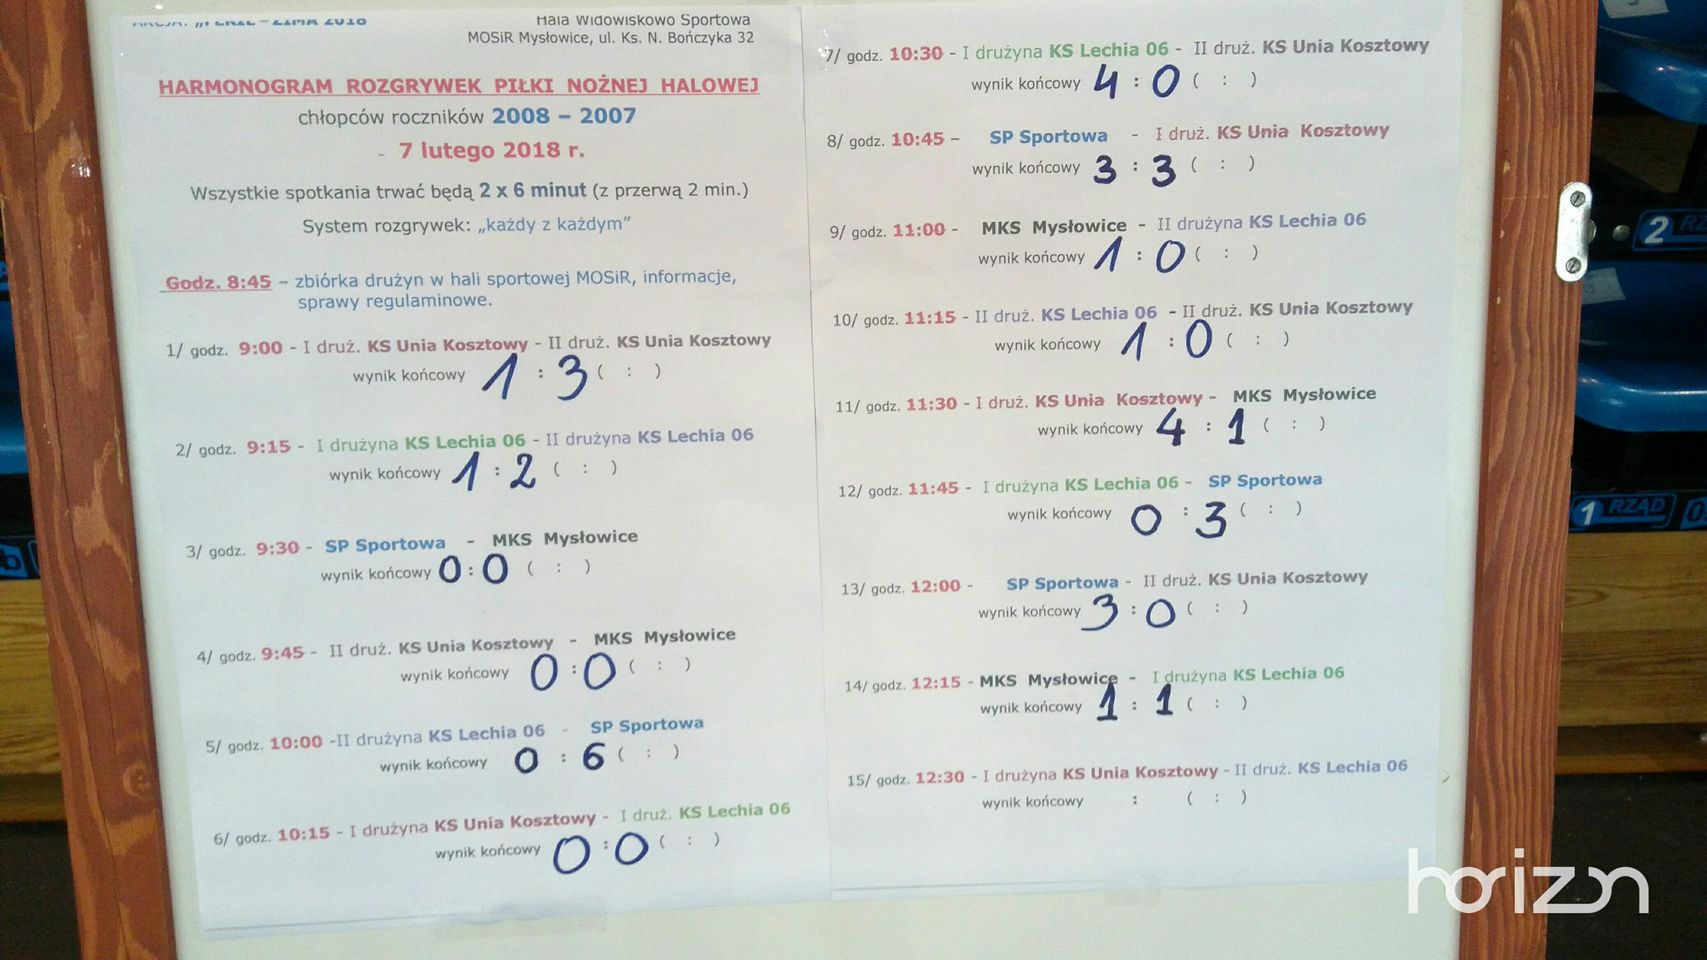 AKCJA: „FERIE – ZIMA 2018
Hala Widowiskowo Sportowa
MOSiR Mysłowice, ul. Ks. N. Bończyka 32
HARMONOGRAM ROZGRYWEK PIŁKI NOŻNEJ HALOWEJ
chłopców roczników 2008 – 2007
- 7 lutego 2018 r.
Wszystkie spotkania trwać będą 2 x 6 minut (z przerwą 2 min.)
System rozgrywek: „każdy z każdym”
Godz. 8:45 – zbiórka drużyn w hali sportowej MOSiR, informacje,
sprawy regulaminowe.
1/ godz. 9:00 - I druż. KS Unia Kosztowy - II druż. KS Unia Kosztowy
wynik końcowy 1 : 3 ( : )
2/ godz. 9:15 - I drużyna KS Lechia 06 - II drużyna KS Lechia 06
wynik końcowy 1 : 2 ( : )
3/ godz. 9:30 - SP Sportowa - MKS Mysłowice
wynik końcowy 0 : 0 ( : )
4/ godz. 9:45 - II druż. KS Unia Kosztowy - MKS Mysłowice
wynik końcowy 0 : 0 ( : )
5/ godz. 10:00 -II drużyna KS Lechia 06 - SP Sportowa
wynik końcowy 0 : 6 ( : )
6/ godz. 10:15 - I drużyna KS Unia Kosztowy - I druż. KS Lechia 06
wynik końcowy 0 : 0 ( : )
7/ godz. 10:30 - I drużyna KS Lechia 06 - II druż. KS Unia Kosztowy
wynik końcowy 4 : 0 ( : )
8/ godz. 10:45 – SP Sportowa - I druż. KS Unia Kosztowy
wynik końcowy 3 : 3 ( : )
9/ godz. 11:00 - MKS Mysłowice - II drużyna KS Lechia 06
wynik końcowy 1 : 0 ( : )
10/ godz. 11:15 - II druż. KS Lechia 06 - II druż. KS Unia Kosztowy
wynik końcowy 1 : 0 ( : )
11/ godz. 11:30 - I druż. KS Unia Kosztowy - MKS Mysłowice
wynik końcowy 4 : 1 ( : )
12/ godz. 11:45 - I drużyna KS Lechia 06 - SP Sportowa
wynik końcowy 0 : 3 ( : )
13/ godz. 12:00 - SP Sportowa - II druż. KS Unia Kosztowy
wynik końcowy 3 : 0 ( : )
14/ godz. 12:15 - MKS Mysłowice - I drużyna KS Lechia 06
wynik końcowy 1 : 1 ( : )
15/ godz. 12:30 - I drużyna KS Unia Kosztowy - II druż. KS Lechia 06
wynik końcowy : ( : )
2
1 RZĄD
horizon